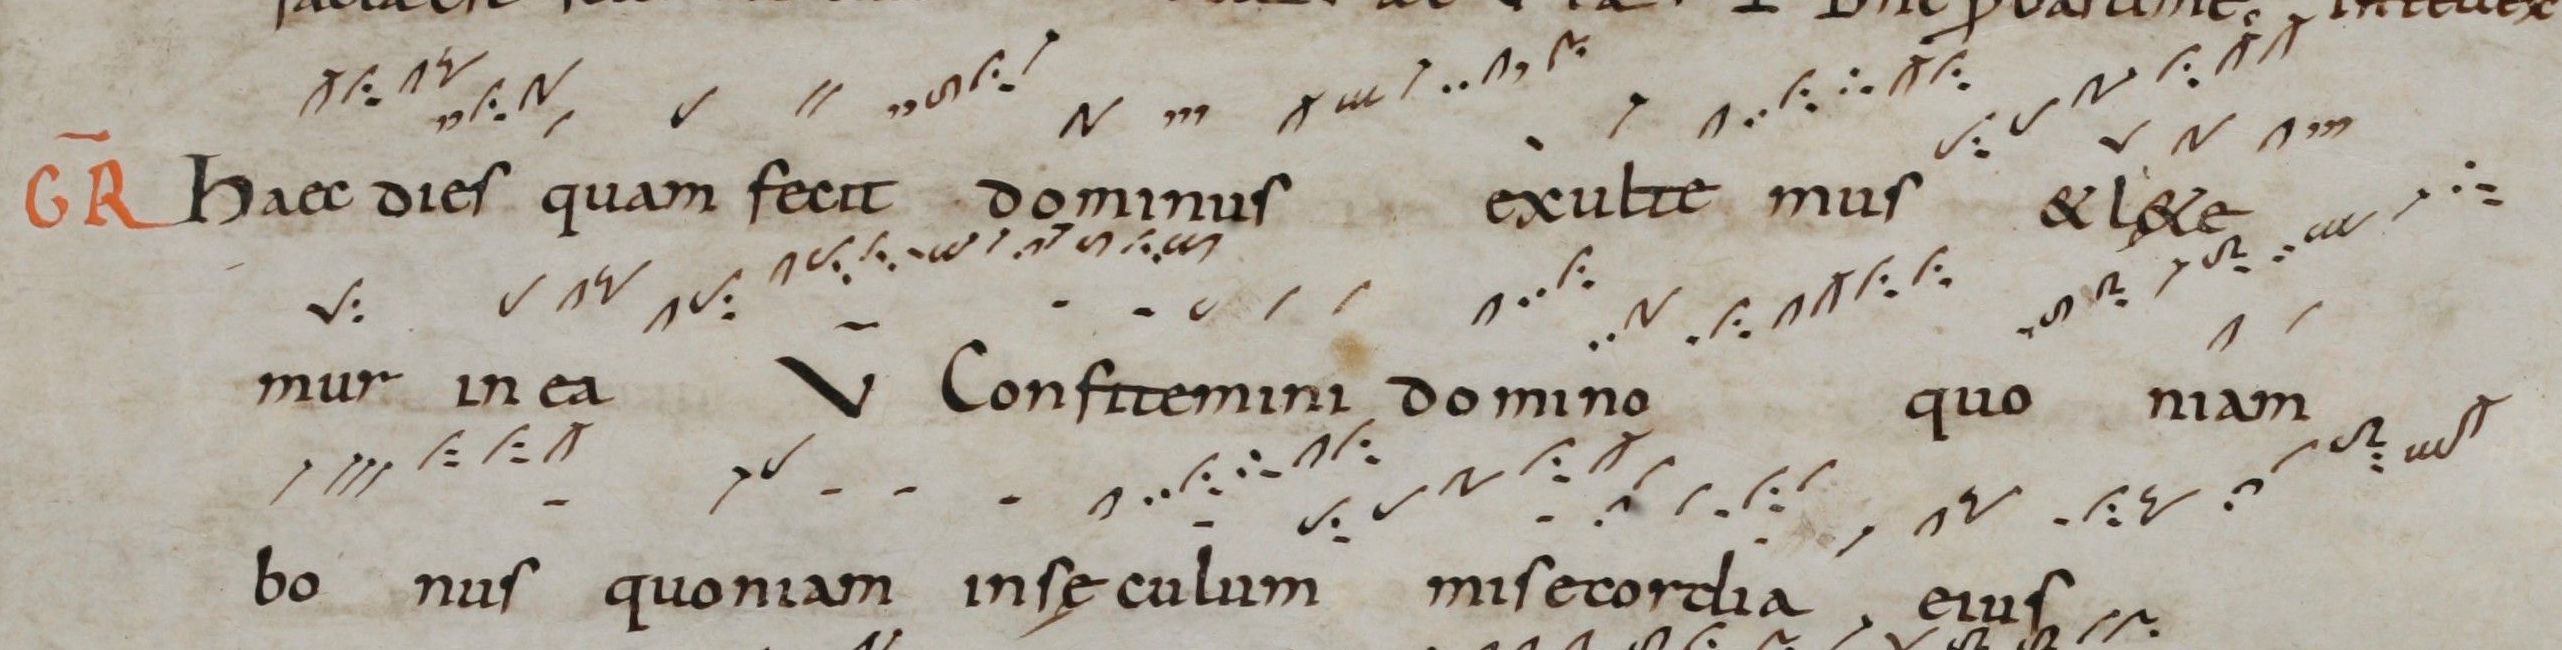 GR Haec dies quam fecit dominus exultemus & l&ę
mur in ea V Confitemini domino quoniam
bonus quoniam insęculum misericordia eius